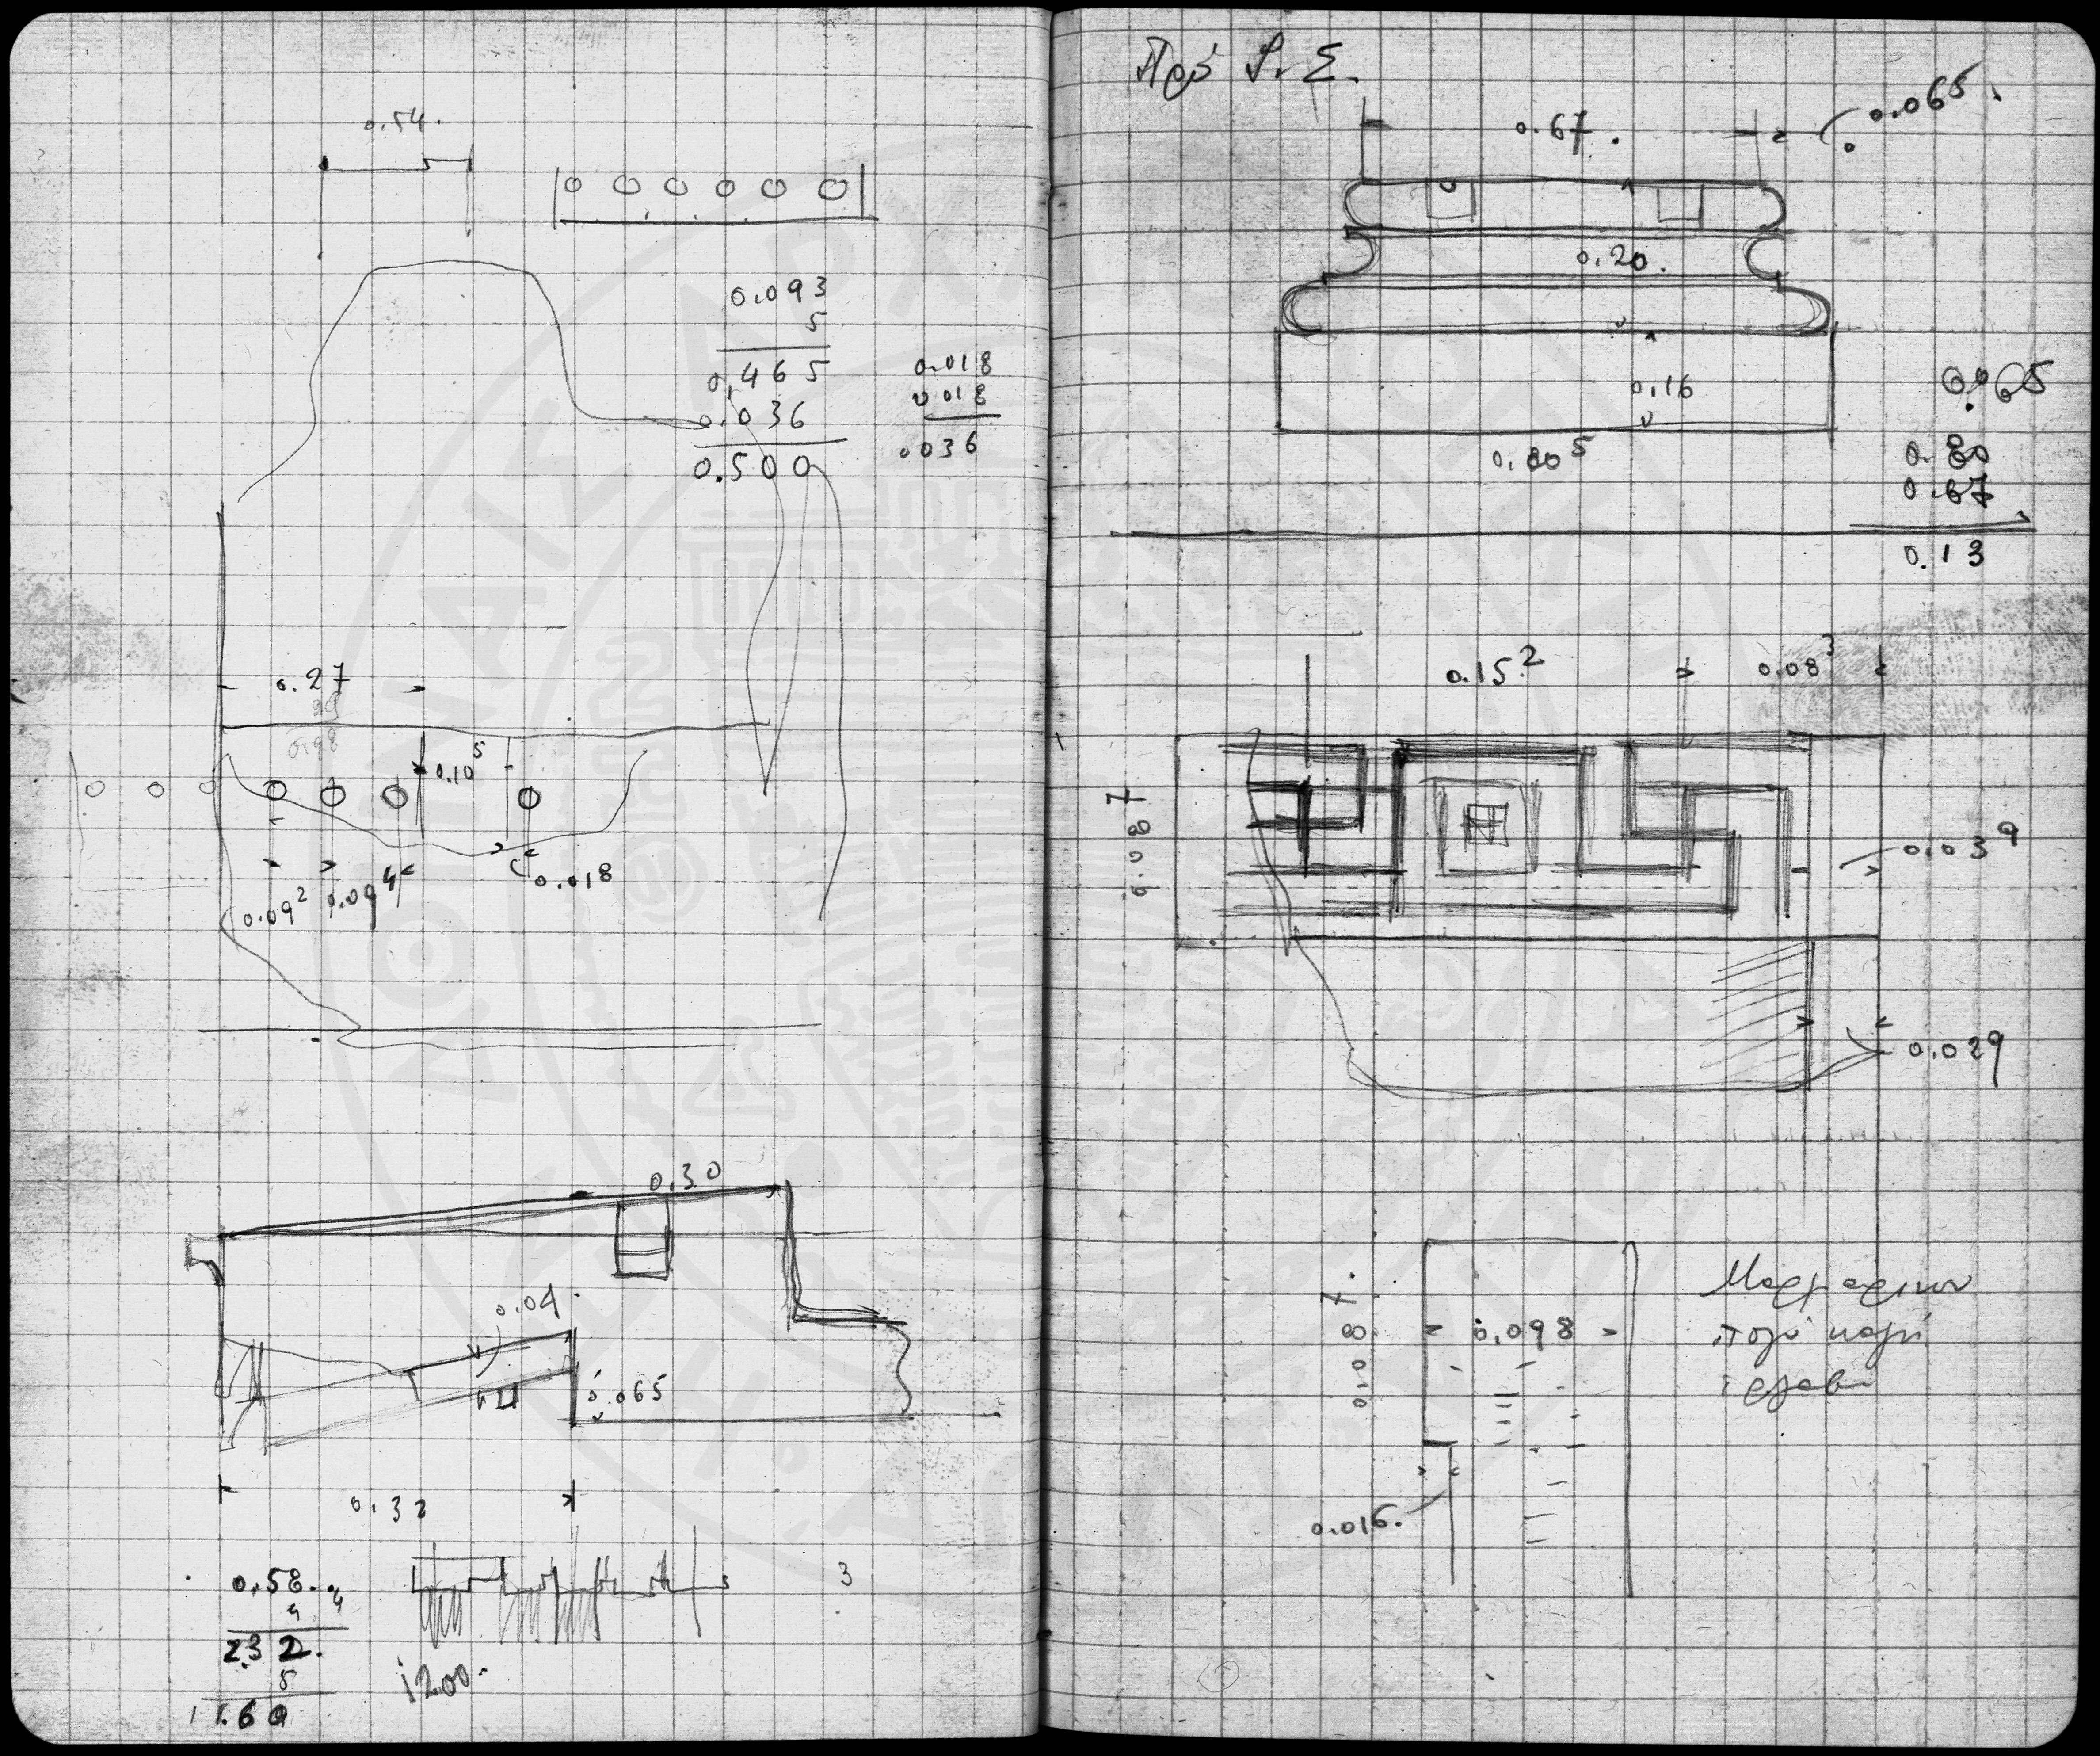 0.54.
0.093
5
0,465
0.036
0.500
0.018
0.018
0.036
0.27
0.10⁵
0.09²
0.09⁴
0.018
0.30
0.04.
0.065
0.32
0.58.
4
4
2.32.
5
11.60
1200.
3
Πρό
Σ.
0.67.
0.065.
0.20.
0.16
0.80⁵
0.065
0.80
0.67
0.13
0.15²
0.08³
0.087
0.03⁹
0.029
0.087.
0.098
0.016.